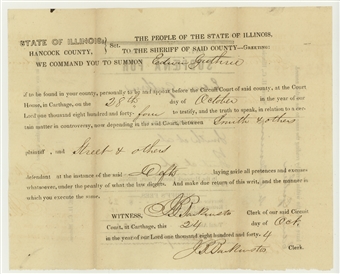 STATE OF ILLINOIS,
HANCOCK COUNTY.
Sct.
THE PEOPLE OF THE STATE OF ILLINOIS.
TO THE SHERIFF OF SAID COUNTY—GREETING:
WE COMMAND YOU TO SUMMON Edwin Guthrie
if to be found in your county, personally to be and appear before the Circuit Court of said county, at the Court
House, in Carthage, on the 28th day of October in the year of our
Lord one thousand eight hundred and forty-four to testify, and the truth to speak, in relation to a cer-
tain matter in controversy, now depending in the said Court, between Smith & others
plaintiff and Street & others
defendent at the instance of the said Defts laying aside all pretences and excuses
whatsoever, under the penalty of what the law directs. And make due return of this writ, and the manner in
which you execute the same.
WITNESS, J. B. Backenstos Clerk of our said Circuit
Court, in Carthage, this 24 day of Oct.
in the year of our Lord one thousand eight hundred and forty-4
J. B. Backenstos Clerk.